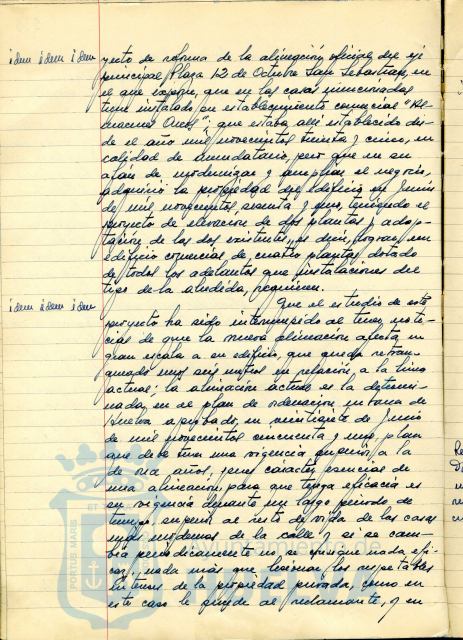 idem idem idem
yecto de reforma de la alineación oficial del eje
principal Plaza 12 de Octubre San Sebastián, en
el que expone, que en las casas mencionadas
tiene instalado, su establecimiento comercial "Al-
macenes Arcos", que estaba allí establecido des-
de el año mil novecientos treinta y cinco, en
calidad de arrendatario, pero que en su
afán de modernizar y ampliar el negocio,
adquirió la propiedad del edificio en Junio
de mil novecientos sesenta y uno, teniendo el
proyecto de elevación de dos plantas y adap-
tación de las dos existentes, es decir, lograr un
edificio comercial de cuatro plantas dotado
de todos los adelantos que instalaciones del
tipo de la aludida, requieren.
idem idem idem
Que el estudio de este
proyecto ha sido interrumpido al tener noti-
cias de que la nueva alineación afecta en
gran escala a su edificio, que queda retran-
queado unos seis metros en relación, a la línea
actual; la alineación actual es la determi-
nada en el plan de ordenación urbana de
Huelva, aprobado, en veintisiete de Junio
de mil novecientos cincuenta y uno, plan
que debe tener una vigencia superior a la
de once años, pues carácter esencial de
una alineación para que tenga eficacia es
su vigencia durante un largo periodo de
tiempo, superior al resto de vida de las casas
más modernas de la calle y si se cam-
bia periodicamente no se consigue nada efi-
caz, nada más que lesionar los respetables
intereses de la propiedad privada, como en
este caso le sucede al reclamante, y en
PORTUS MARIS